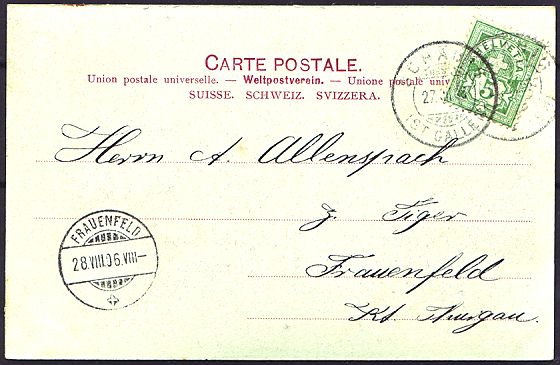 CARTE POSTALE.
Union postale universelle. — Weltpostverein. — Unione postale univers
SUISSE. SCHWEIZ. SVIZZERA.
HELVETIA
5
27.
(ST GALLEN)
Herrn A. Allenspach
z. Tiger
Frauenfeld
Kt. Thurgau.
FRAUENFELD
28.VIII.06.VIII—